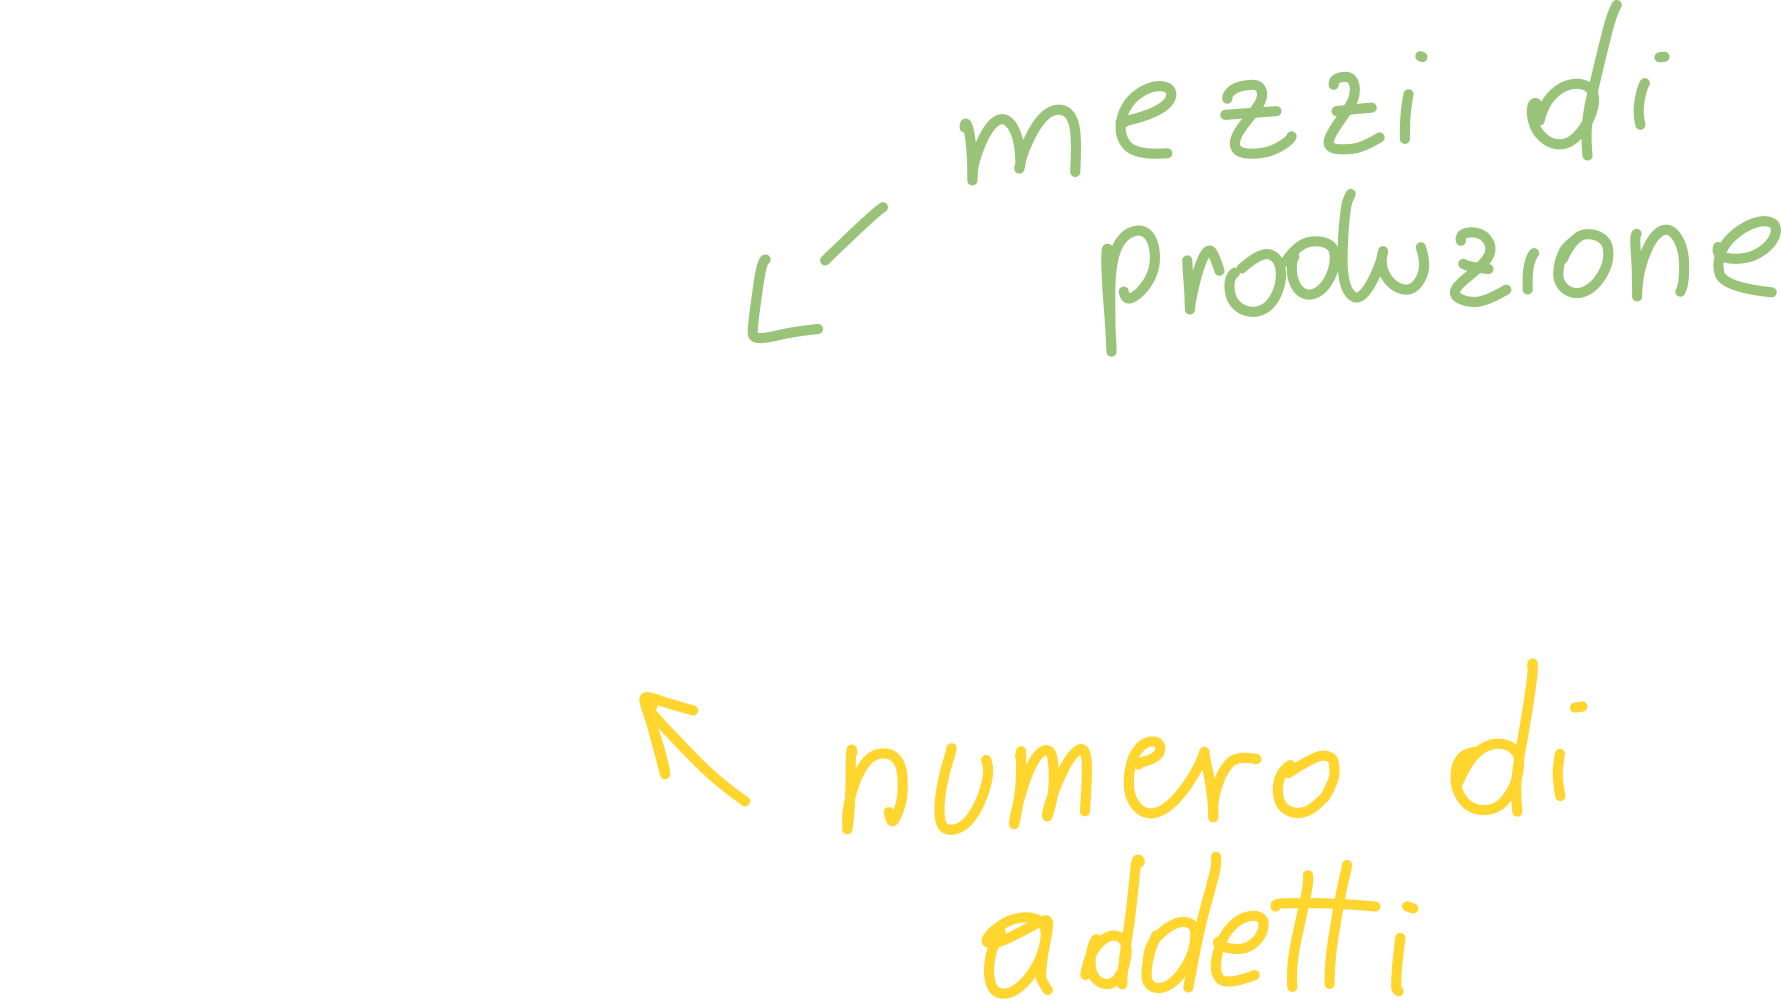 mezzi di
produzione
numero di
addetti